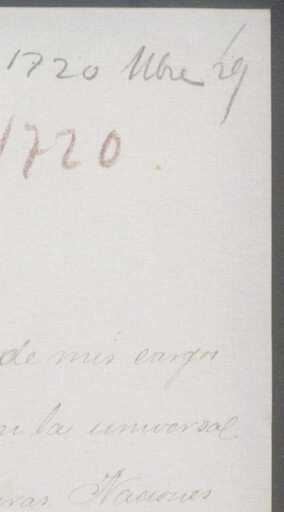 1720 29
1720.
de mis cargos
la universal
Naciones